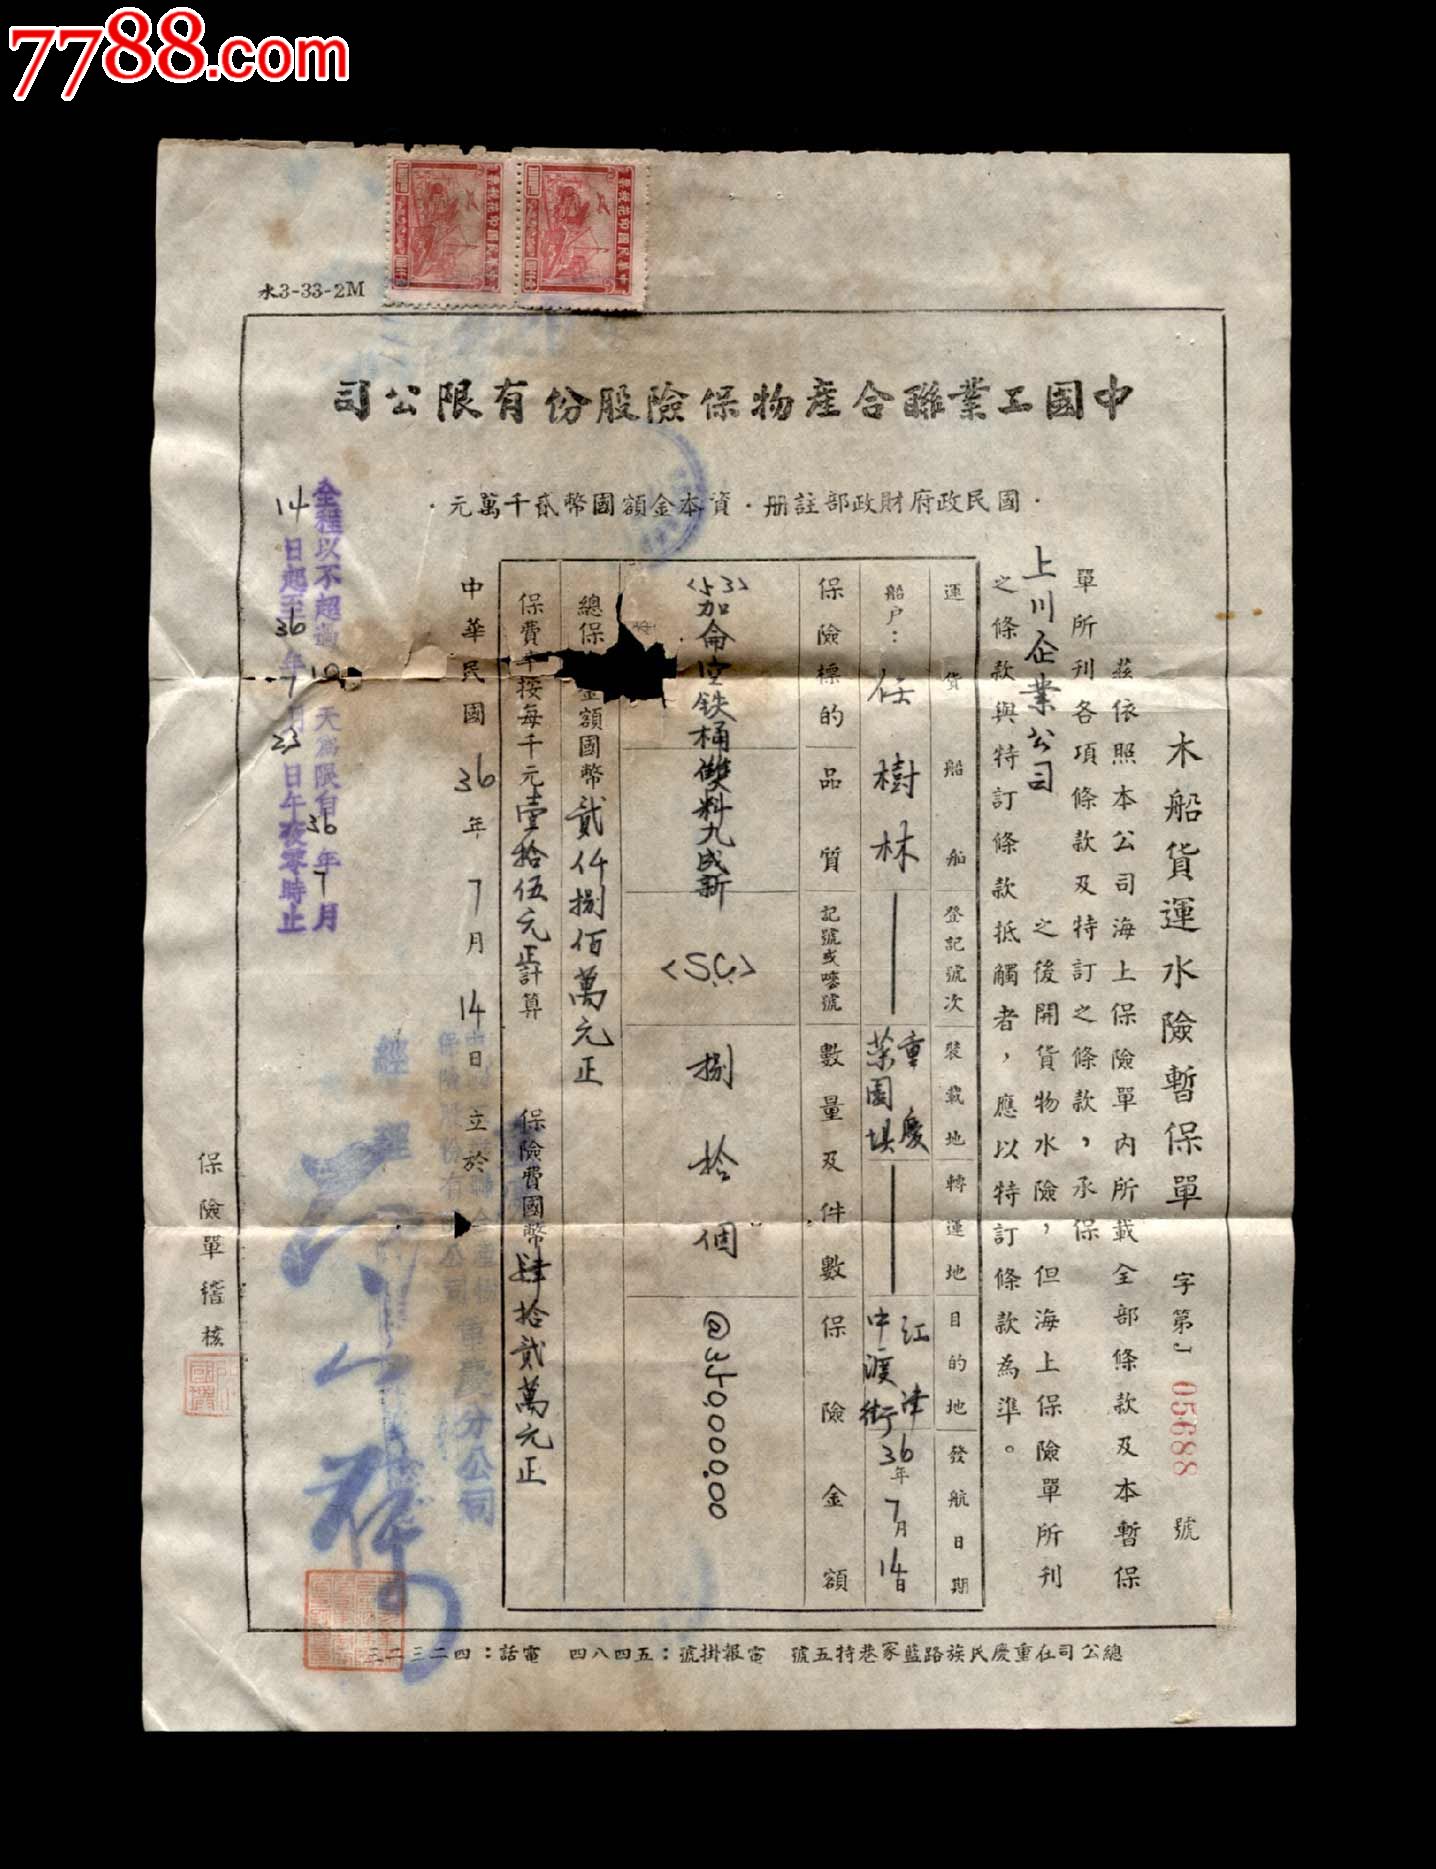 7788.com
水3-33-2M
中國工業聯合產物保險股份有限公司
·國民政府財政部註冊·資本金額國幣貳千萬元·
木船貨運水險暫保單 字第J 05688 號
茲依照本公司海上保險單內所載全部條款及本暫保
單所刊各項條款及特訂之條款，承保
上川企業公司 之後開貨物水險，但海上保險單所刊
之條款與特訂條款抵觸者，應以特訂條款為準。
運貨船船 登記號次 裝載地 轉運地 目的地 發航日期
船戶：任樹林
重慶
菜園垻
江津
中渡街
36年7月14日
保險標的品質 記號或嘜號 數量及件數 保險金額
<53>加侖空鉄桶雙料九成新 <S.C.> 捌拾個 @350,000.00
總保 金額國幣貳仟捌佰萬元正
保費率按每千元壹拾伍元正計算 保險費國幣肆拾貳萬元正
中華民國36年7月14日立於
重慶分公司
經理
全程以不超過10天為限自36年7月
14日起至36年7月23日午夜零時止
保險單稽核
總公司在重慶民族路藍家巷特五號 電報掛號：五四八四 電話：四二三二三